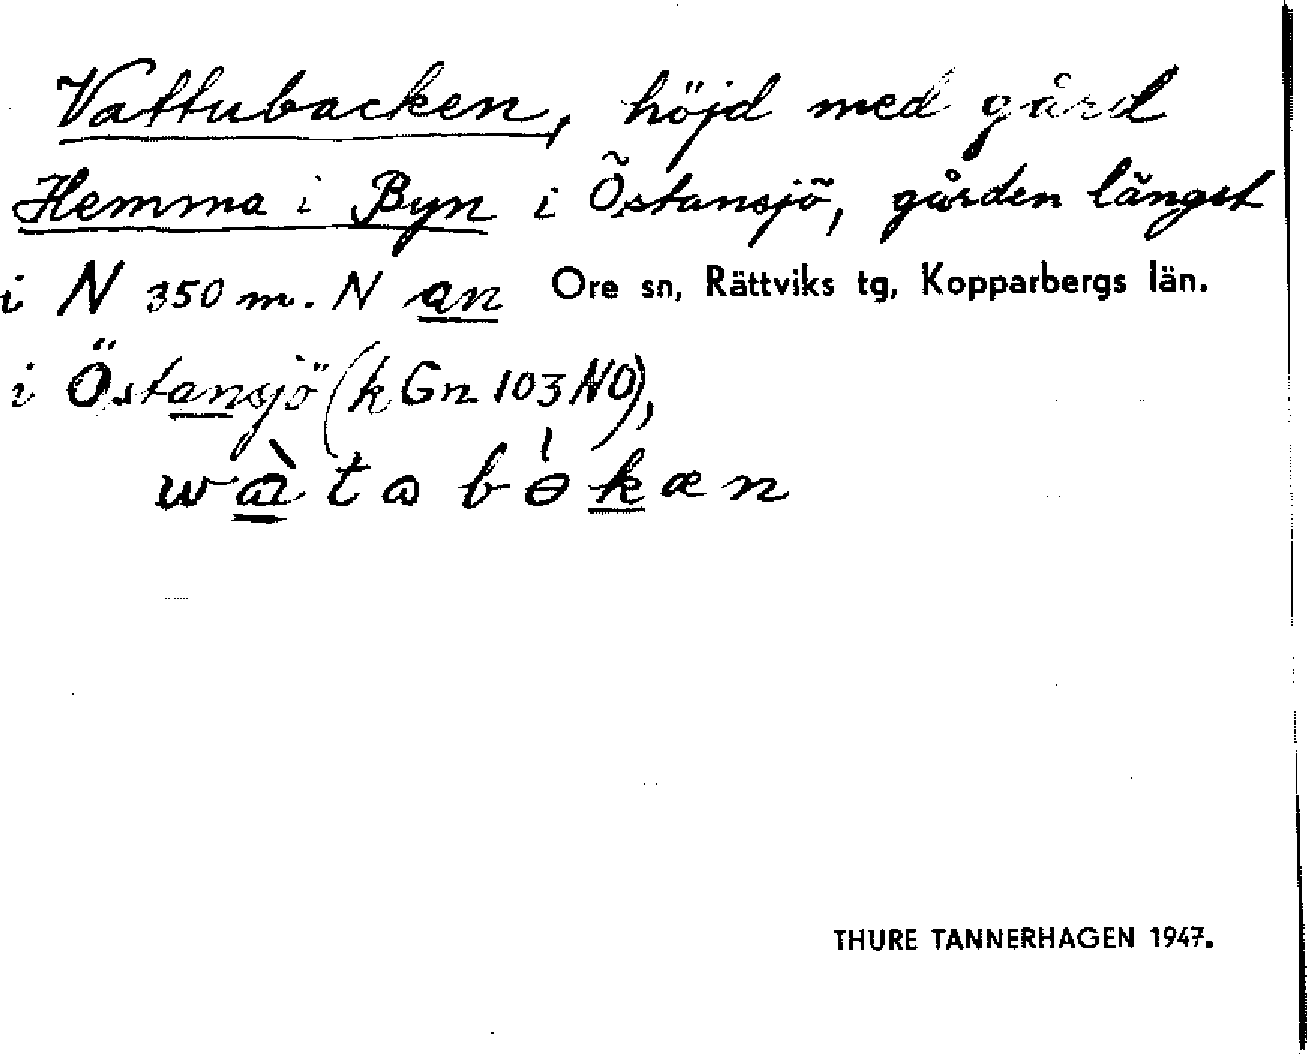 Vattubacken, höjd med gård
Hemma i Byn i Östansjö, gården längst
i N 350 m. N an Ore sn, Rättviks tg, Kopparbergs län.
i Östansjö (k Gn 103 NO),
wàtabɵ́kæn
THURE TANNERHAGEN 1947.